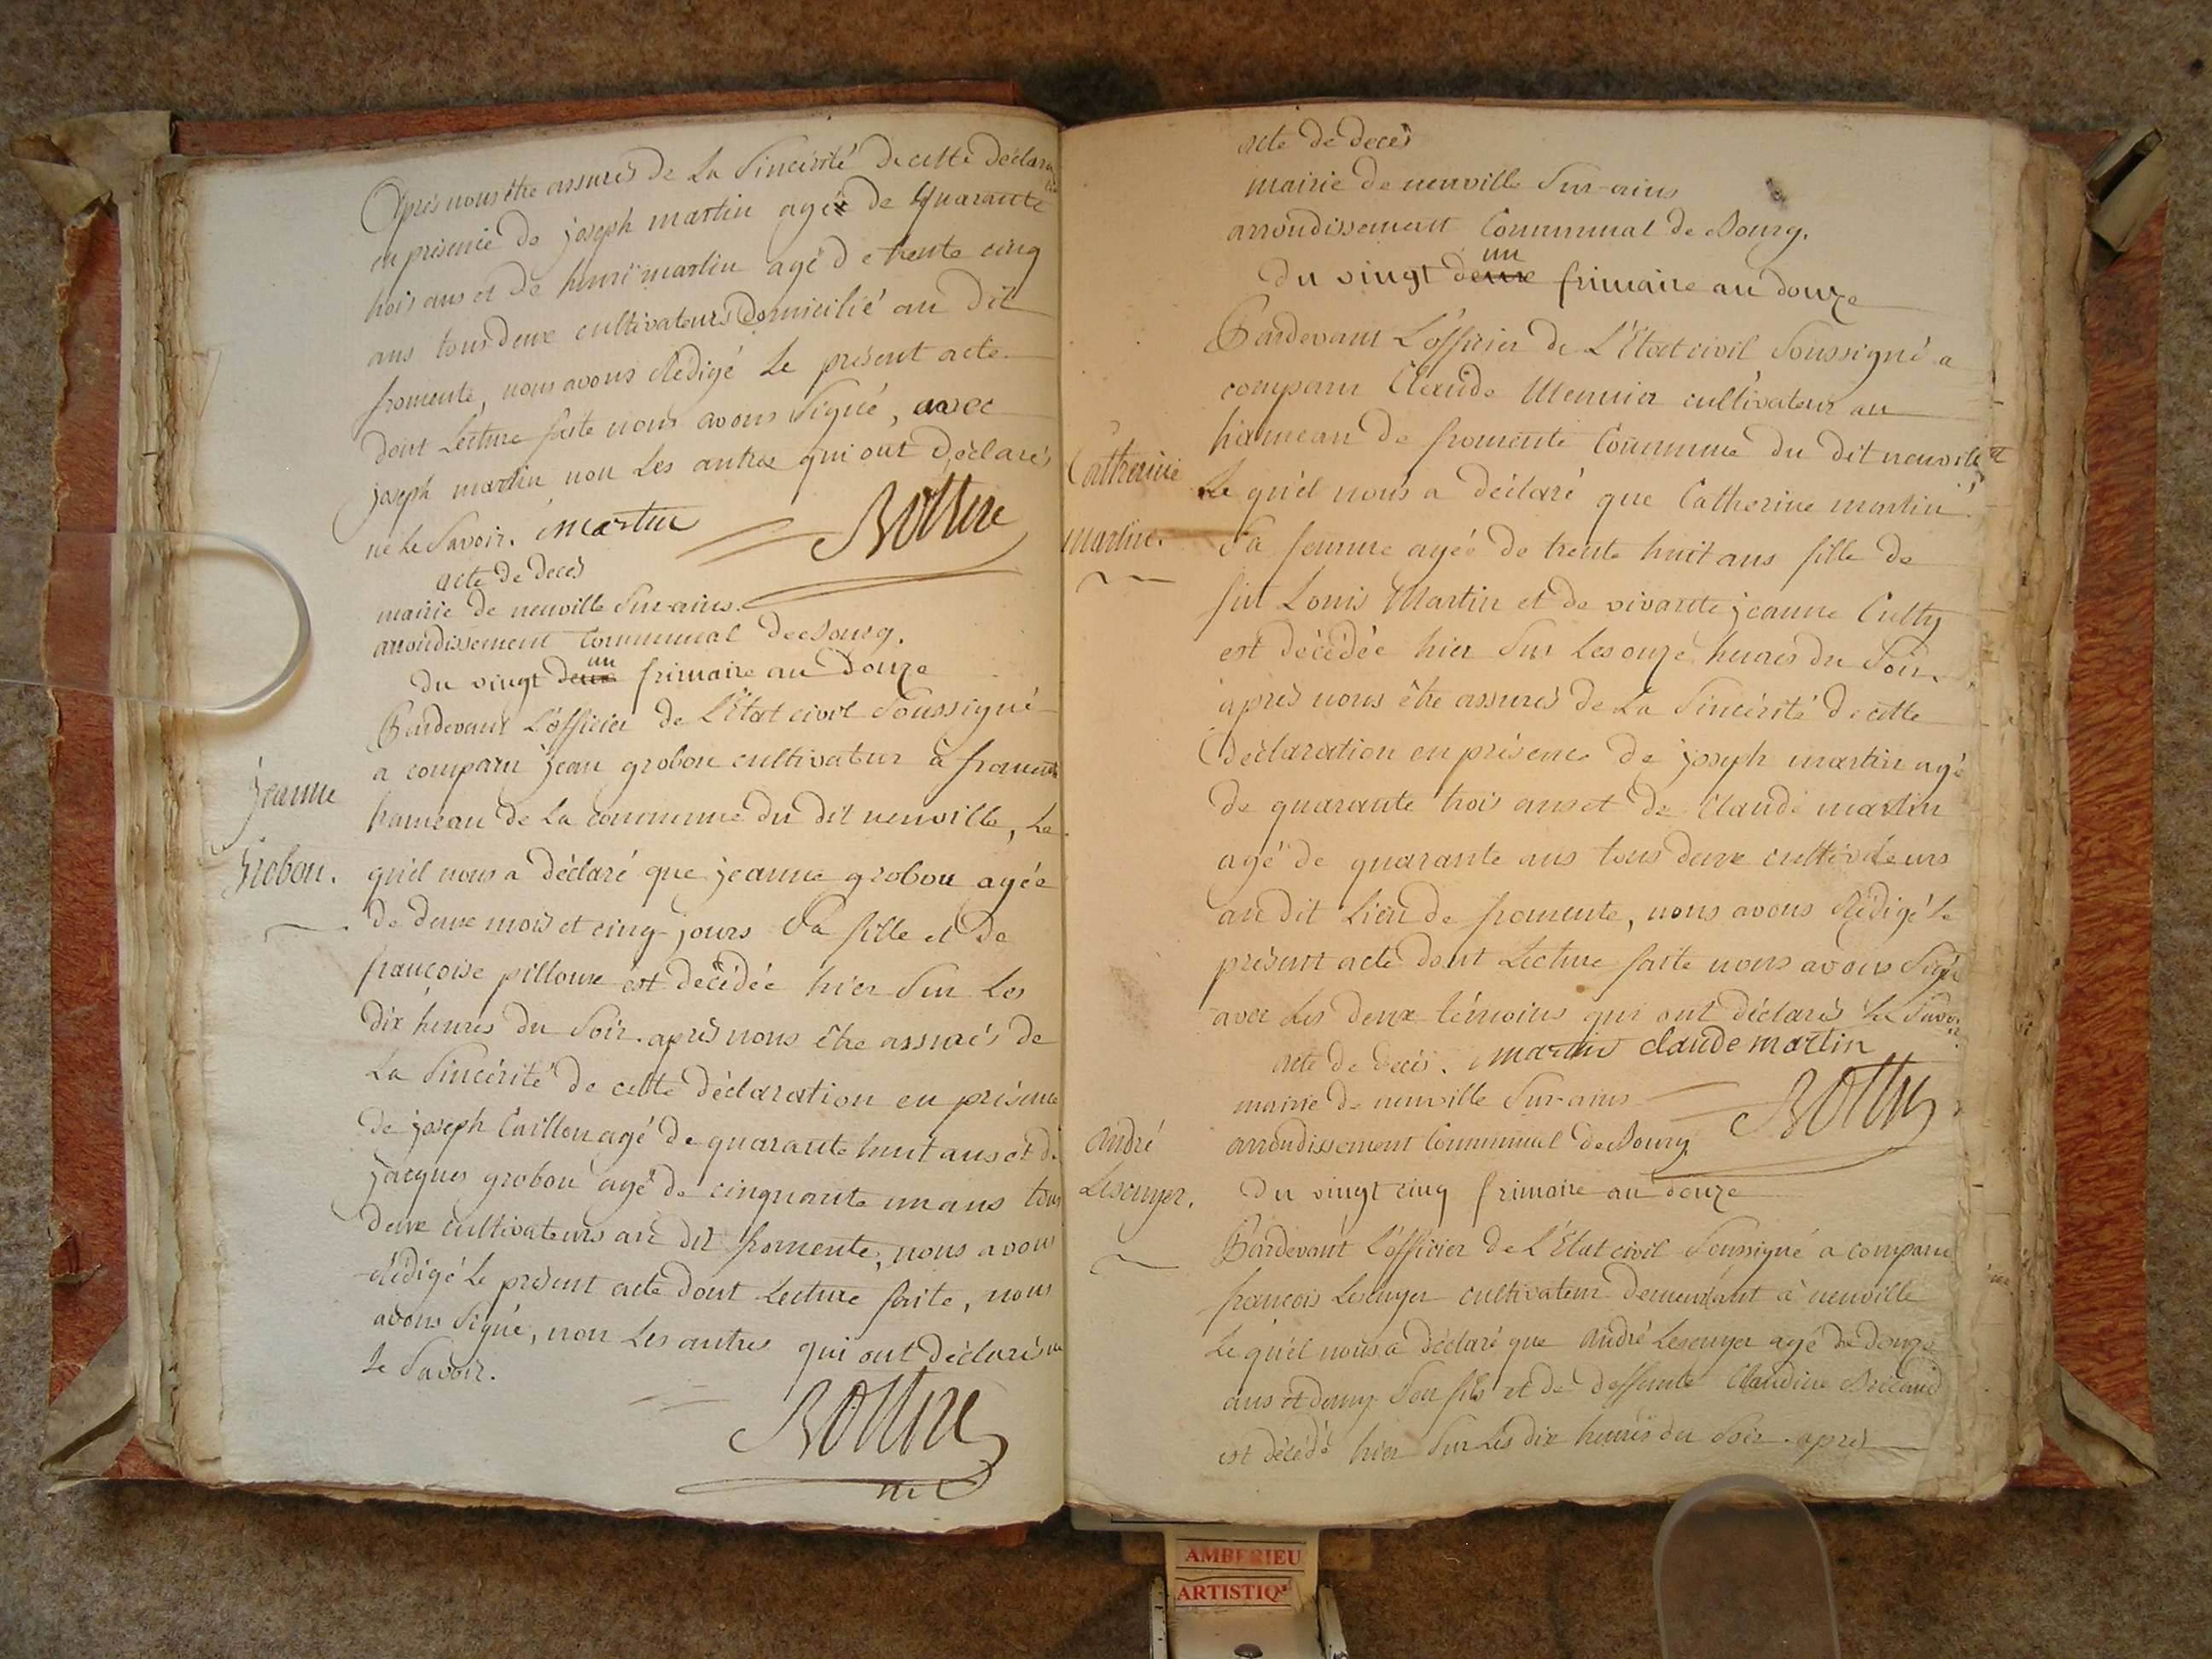 Après nous être assurés de La Sincérité de cette déclara
en présence de joseph martin agé de quarante
trois ans et de henri martin agé de trente cinq
ans tous deux cultivateurs domicilié au dit
fromente, nous avons Rédigé Le présent acte
dont Lecture faite nous avons Signé, avec
joseph martin non Les autres qui ont déclarés
ne Le Savoir. martin
Rottere
acte de decés
mairie de neuville Sur-ains.
arrondissement Communal de Bourg.
du vingt deux un frimaire an Douze
Pardevant L'officier de L'Etat civil Soussigné
a comparu jean grobon cultivateur à fromente
hameau de La commune du dit neuville, Le
jeanne
Grobon.
quel nous a déclaré que jeanne grobon agée
de deux mois et cinq jours Sa fille et de
françoise pilloux est décédée hier Sur Les
dix heures du Soir. après nous être assurés de
La Sincérité de cette déclaration en présence
de joseph Caillon agé de quarante huit ans et de
jacques grobon agé de cinquante un ans tous
deux cultivateurs au dit fromente, nous avons
rédigé Le présent acte dont Lecture faite, nous
avons Signé, non Les autres qui ont déclarés ne
Le Savoir.
Rottere
acte de decès
mairie de neuville Sur-ains
arrondissement Communal de Bourg.
du vingt deux un frimaire an douze
Pardevant L'officier de L'Etat civil Soussigné a
comparu Claude Meunier cultivateur au
hameau de fromente Commune du dit neuville
Catherine
martin.
Le quel nous a déclaré que Catherine martin
Sa femme agée de trente huit ans fille de
fut Louis Martin et de vivante jeanne Culty
est décédée hier Sur Les onze heures du Soir.
après nous être assurés de La Sincérité de cette
déclaration en présence de joseph martin agé
de quarante trois ans et de Claude martin
agé de quarante ans tous deux cultivateurs
au dit Lieu de fromente, nous avons Rédigé Le
présent acte dont Lecture faite nous avons Signé
avec Les deux témoins qui ont déclarés Le Savoir
martin claude martin
Rottere
acte de decès.
mairie de neuville Sur-ains
André
Lescuyer.
arrondissement Communal de Bourg.
du vingt cinq frimaire an douze
Pardevant L'officier de L'Etat civil Soussigné a comparu
françois Lescuyer cultivateur demeurant à neuville
Le quel nous a déclaré que André Lescuyer agé de douze
ans et demy Son fils et de deffunte Claudine
est décédé hier Sur Les dix heures du Soir. après
AMBERIEU
ARTISTIQ